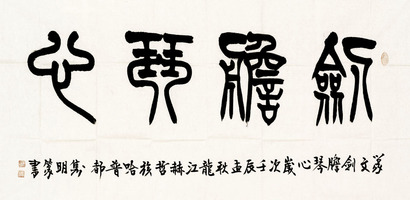 劍膽琴心
篆文劍膽琴心歲次壬辰孟秋龍江赫哲族哈普都隽明篆書